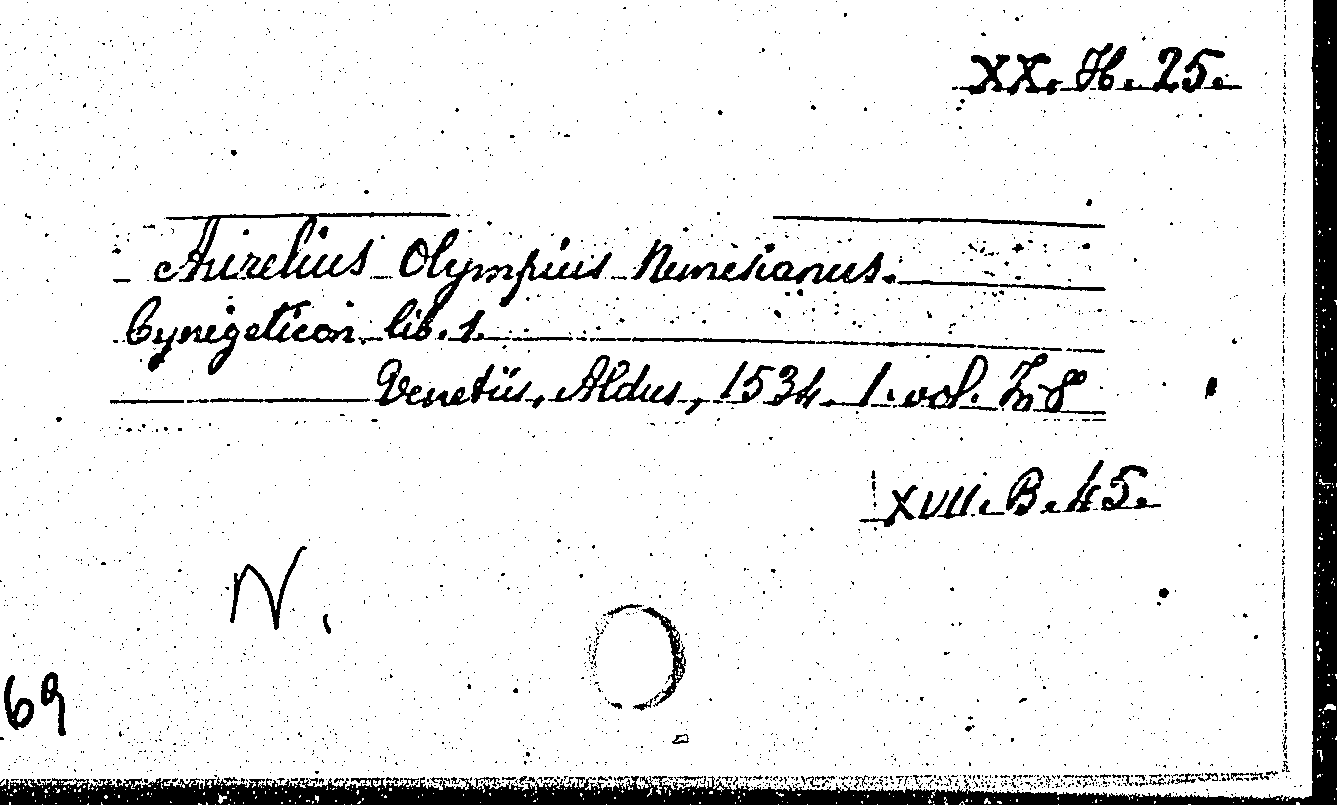 XX. H. 25.
Aurelius Olympius Nemesianus.
Cynegeticon lib. 1.
Venetiis, Aldus, 1534. 1. vol. In 8
XVII. B. 45.
N.
69